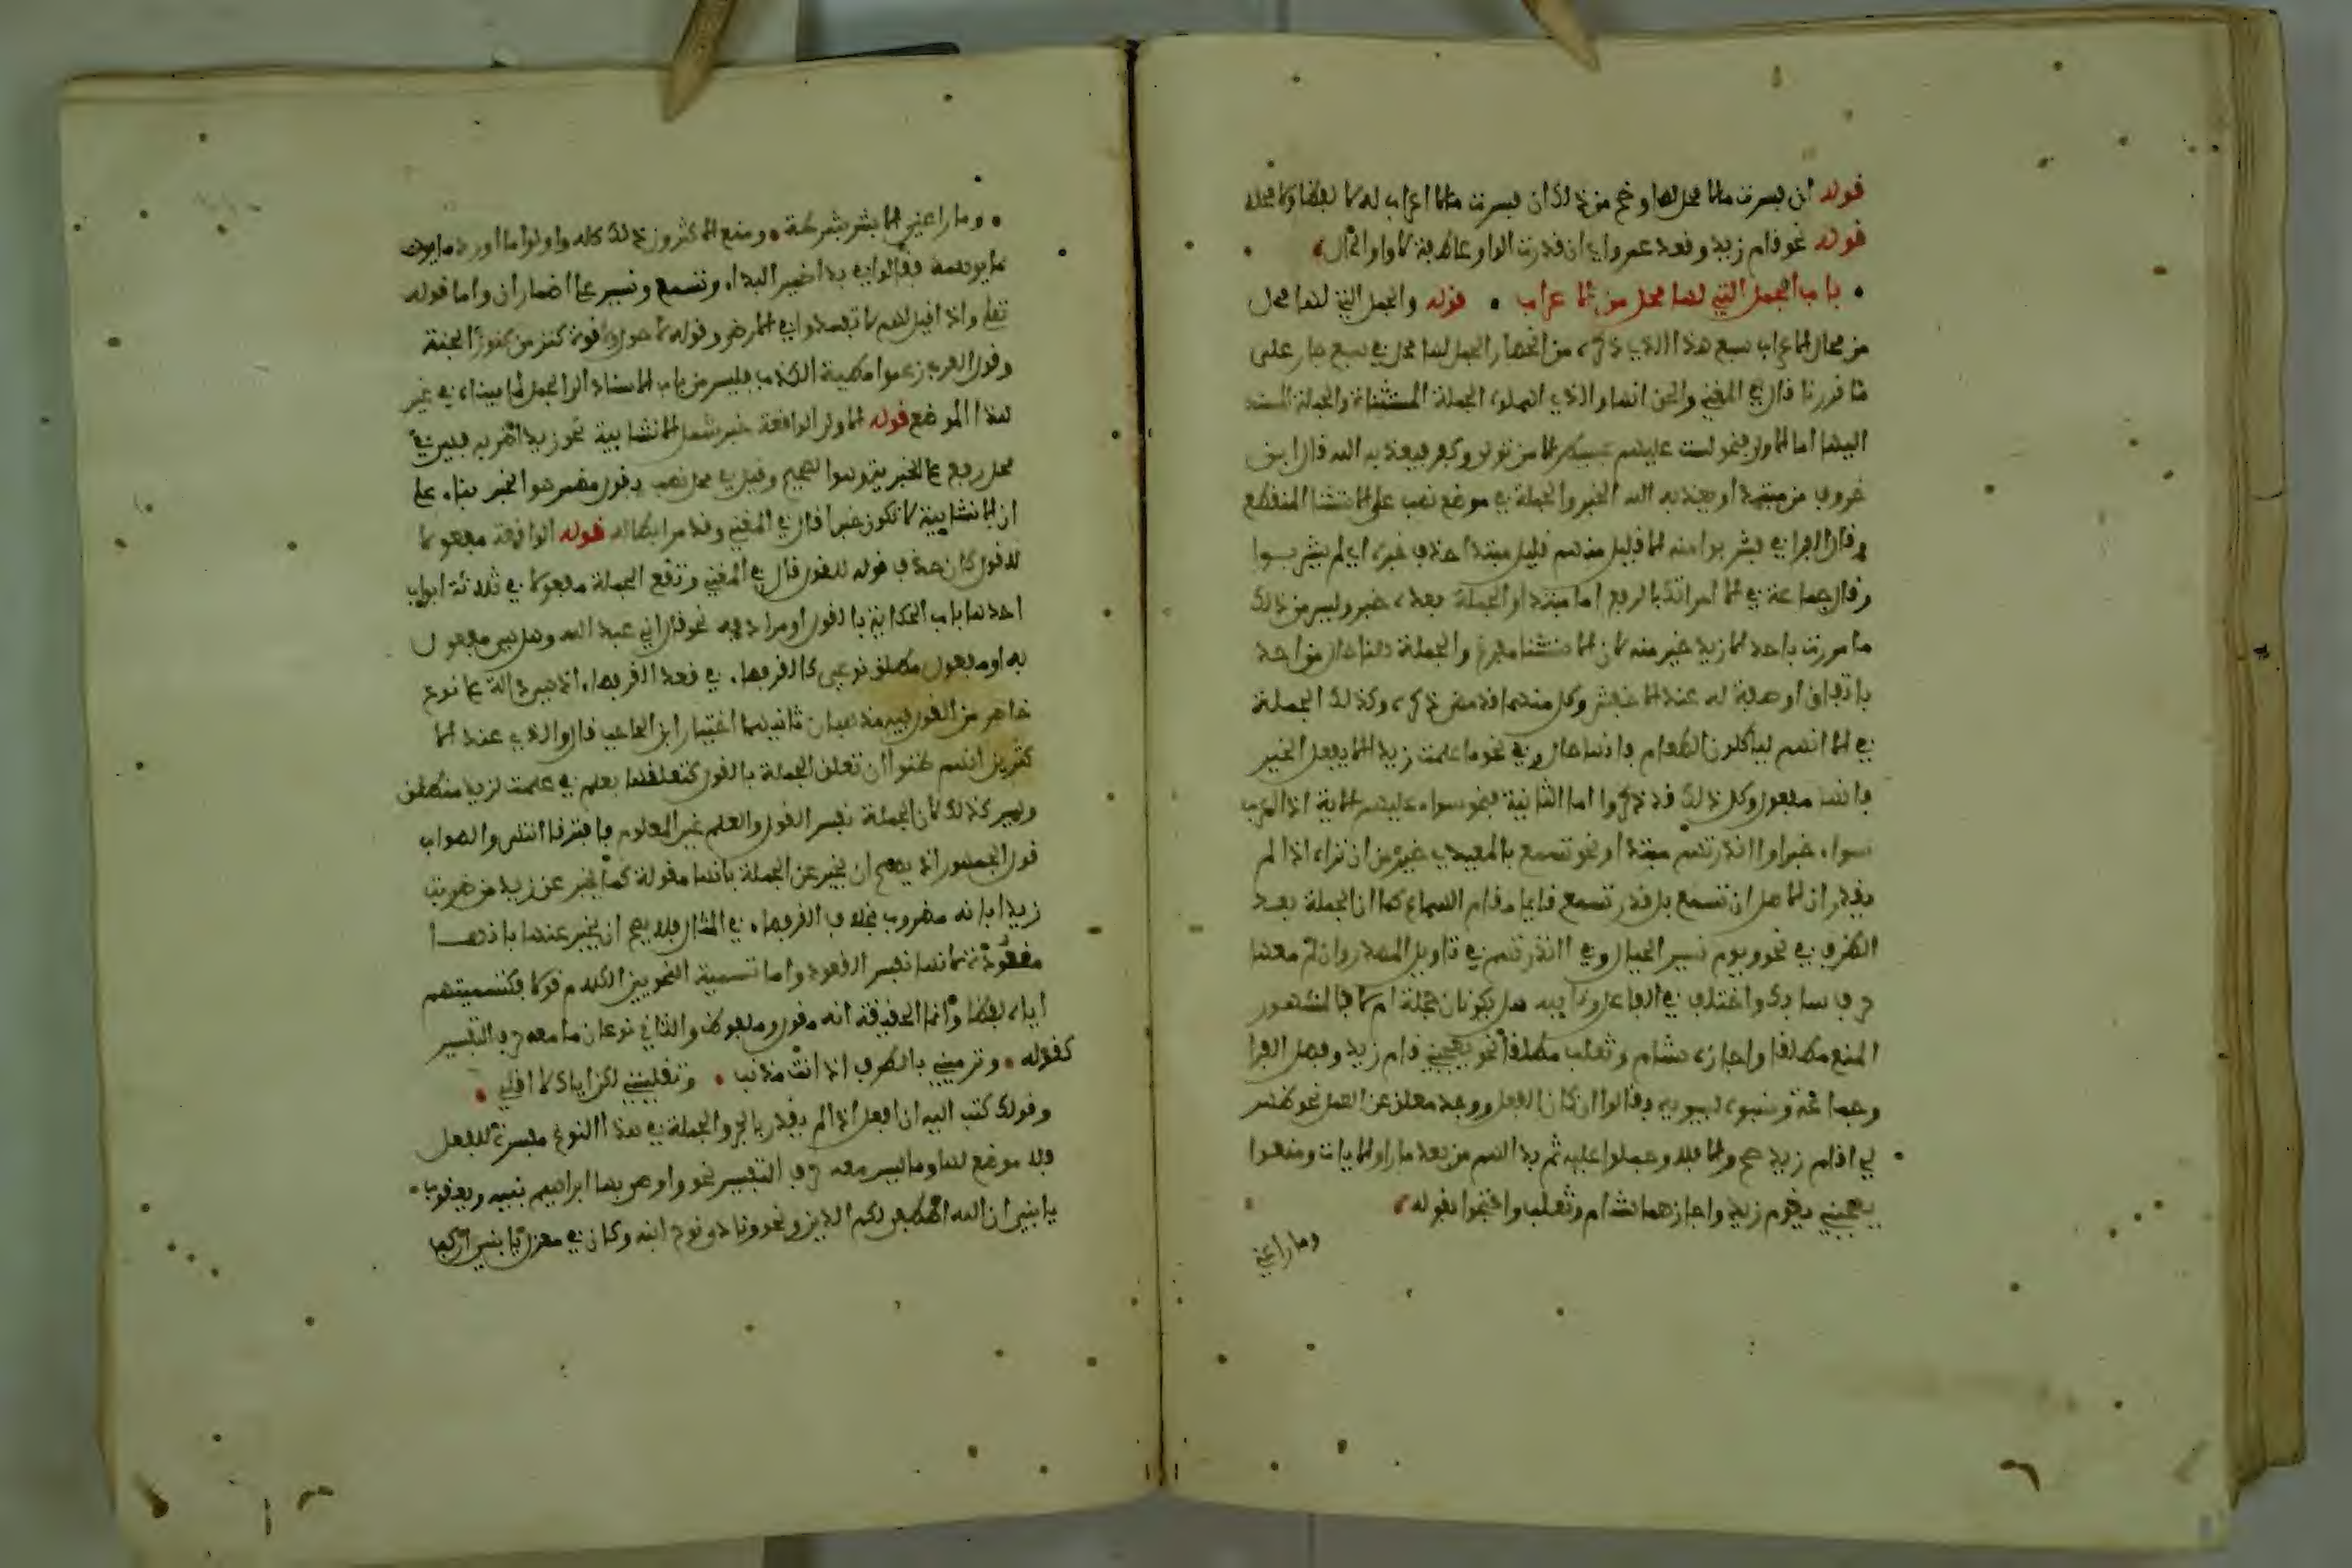 قوله ان فسرت ما لا محل لها وخرج من ذلك ان فسرت ما لا اعراب له لا لفظا ولا محلا
قوله نحو قام زيد وقعد عمرو اي ان قدرت الواو عاطفة لا واو الحال
باب الجمل التي لها محل من الاعراب قوله والجمل التي لها محل
من محال الاعراب سبع هذا الذي ذكره من انحصار الجمل لها محل في سبع جار على
ما قرروا قال في المغني والحق انها والذي اهملوه الجملة المستثناة والجملة المسند
اليها اما الاولى فنحو لست عليهم بمسيطر الا من تولى وكفر فيعذبه الله قال ابن
خروف من مبتدا ويعذبه الله الخبر والجملة في موضع نصب على الاستثنا المنقطع
وقال الفرا في فشربوا منه الا قليل منهم قليل مبتدا حذف خبره اي لم يشربوا
وقال جماعة في الا امراتك بالرفع انها مبتدا والجملة بعده خبر وليس من ذلك
ما مررت باحد الا زيد خير منه لان الاستثنا مفرغ والجملة هنا حال من احد
باتفاق او صفة له عند الاخفش وكل منهما قد مضى ذكره وكذلك الجملة
في الا انهم لياكلون الطعام فانها حال وفي نحو ما علمت زيدا الا يفعل الخير
فانها مفعول وكل ذلك قد ذكروا اما الثانية فنحو سواء عليهم الاية اذا اعرب
سواء خبرا و اانذرتهم مبتدا ونحو تسمع بالمعيدي خير من ان تراه اذا لم
يقدر ان الاصل ان تسمع بل قدر تسمع قايما مقام السماع كما ان الجملة بعد
الظرف في نحو ويوم نسير الجبال وفي اانذرتهم في تاويل المصدر وان لم معهما
حرف سابك واختلف في الفاعل ونايبه هل يكونان جملة ام لا فالمشهور
المنع مطلقا واجازه هشام وثعلب مطلقا نحو يعجبني قام زيد وفصل الفرا
وجماعة ونسبوه لسيبويه فقالوا ان كان الفعل ووجد معلق عن العمل نحو ظهر
لي اقام زيد صح والا فلا وحملوا عليه ثم بدا لهم من بعد ما راوا الايات ومنعوا
يعجبني يقوم زيد واجازهما هشام وثعلب واحتجوا بقوله
وما راعني
وما راعني الا يسير بشرطة ومنع الاكثرون ذلك كله واولوا ما اورد ما يوهم
ما يوهمه فقالوا في بدا ضمير البداء وتسمع ويسير على اضمار ان واما قوله
تعلى واذا قيل لهم لا تفسدوا في الارض وقوله لا حول ولا قوة كنز من كنوز الجنة
وقول العرب زعموا مطية الكذب فليس من باب الاسناد الى الجمل لما بيناه في غير
هذا الموضع قوله الاولى الواقعة خبر شمل الانشايية نحو زيد اضربه فهي في
محل رفع على الخبرية وهوا الصحيح وقيل في محل نصب بقول مضمر هو الخبر بناء على
ان الانشايية لا تكون خبرا قال في المغني وقد مر ابطاله قوله الواقعة مفعولا
للقول كان حذف قوله للقول قال في المغني وتقع الجملة مفعولا في ثلاثة ابواب
احدها باب الحكاية بالقول او مرادفه نحو قال اني عبد الله وهل هي مفعول
به او مفعول مطلق نوعي كالقرفصاء في قعد القرفصاء اذ هي دالة على نوع
خاص من القول فيه مذهبان ثانيهما اختيار ابن الحاجب قال والذي عند الا
كثرين انهم ظنوا ان تعلق الجملة بالقول كتعلقها بعلم في علمت لزيد منطلق
وليس كذلك لان الجملة نفس القول والعلم غير المعلوم فافترقا انتهى والصواب
قول الجمهور اذ يصح ان يخبر عن الجملة بانها مقولة كما يخبر عن زيد من ضربت
زيدا بانه مضروب بخلاف القرفصاء في المثال فلا يصح ان يخبر عنها بانها
مقعودة لانها نفس القعود واما تسمية النحويين الكلام قولا فكتسميتهم
اياه لفظا وانما الحقيقة انه مقول وملفوظ والثاني نوعان ما معه حرف التفسير
كقوله وترمينني بالطرف اي انت مذنب وتقلينني لكن اياك لا اقلي
وقولك كتبت اليه ان افعل اذا لم يقدر بالجر والجملة في هذا النوع مفسرة للفعل
فلا موضع لها وما ليس معه حرف التفسير نحو واوصى بها ابراهيم بنيه ويعقوب
يا بني ان الله اصطفى لكم الدين ونحو ونادى نوح ابنه وكان في معزل يا بني اركب